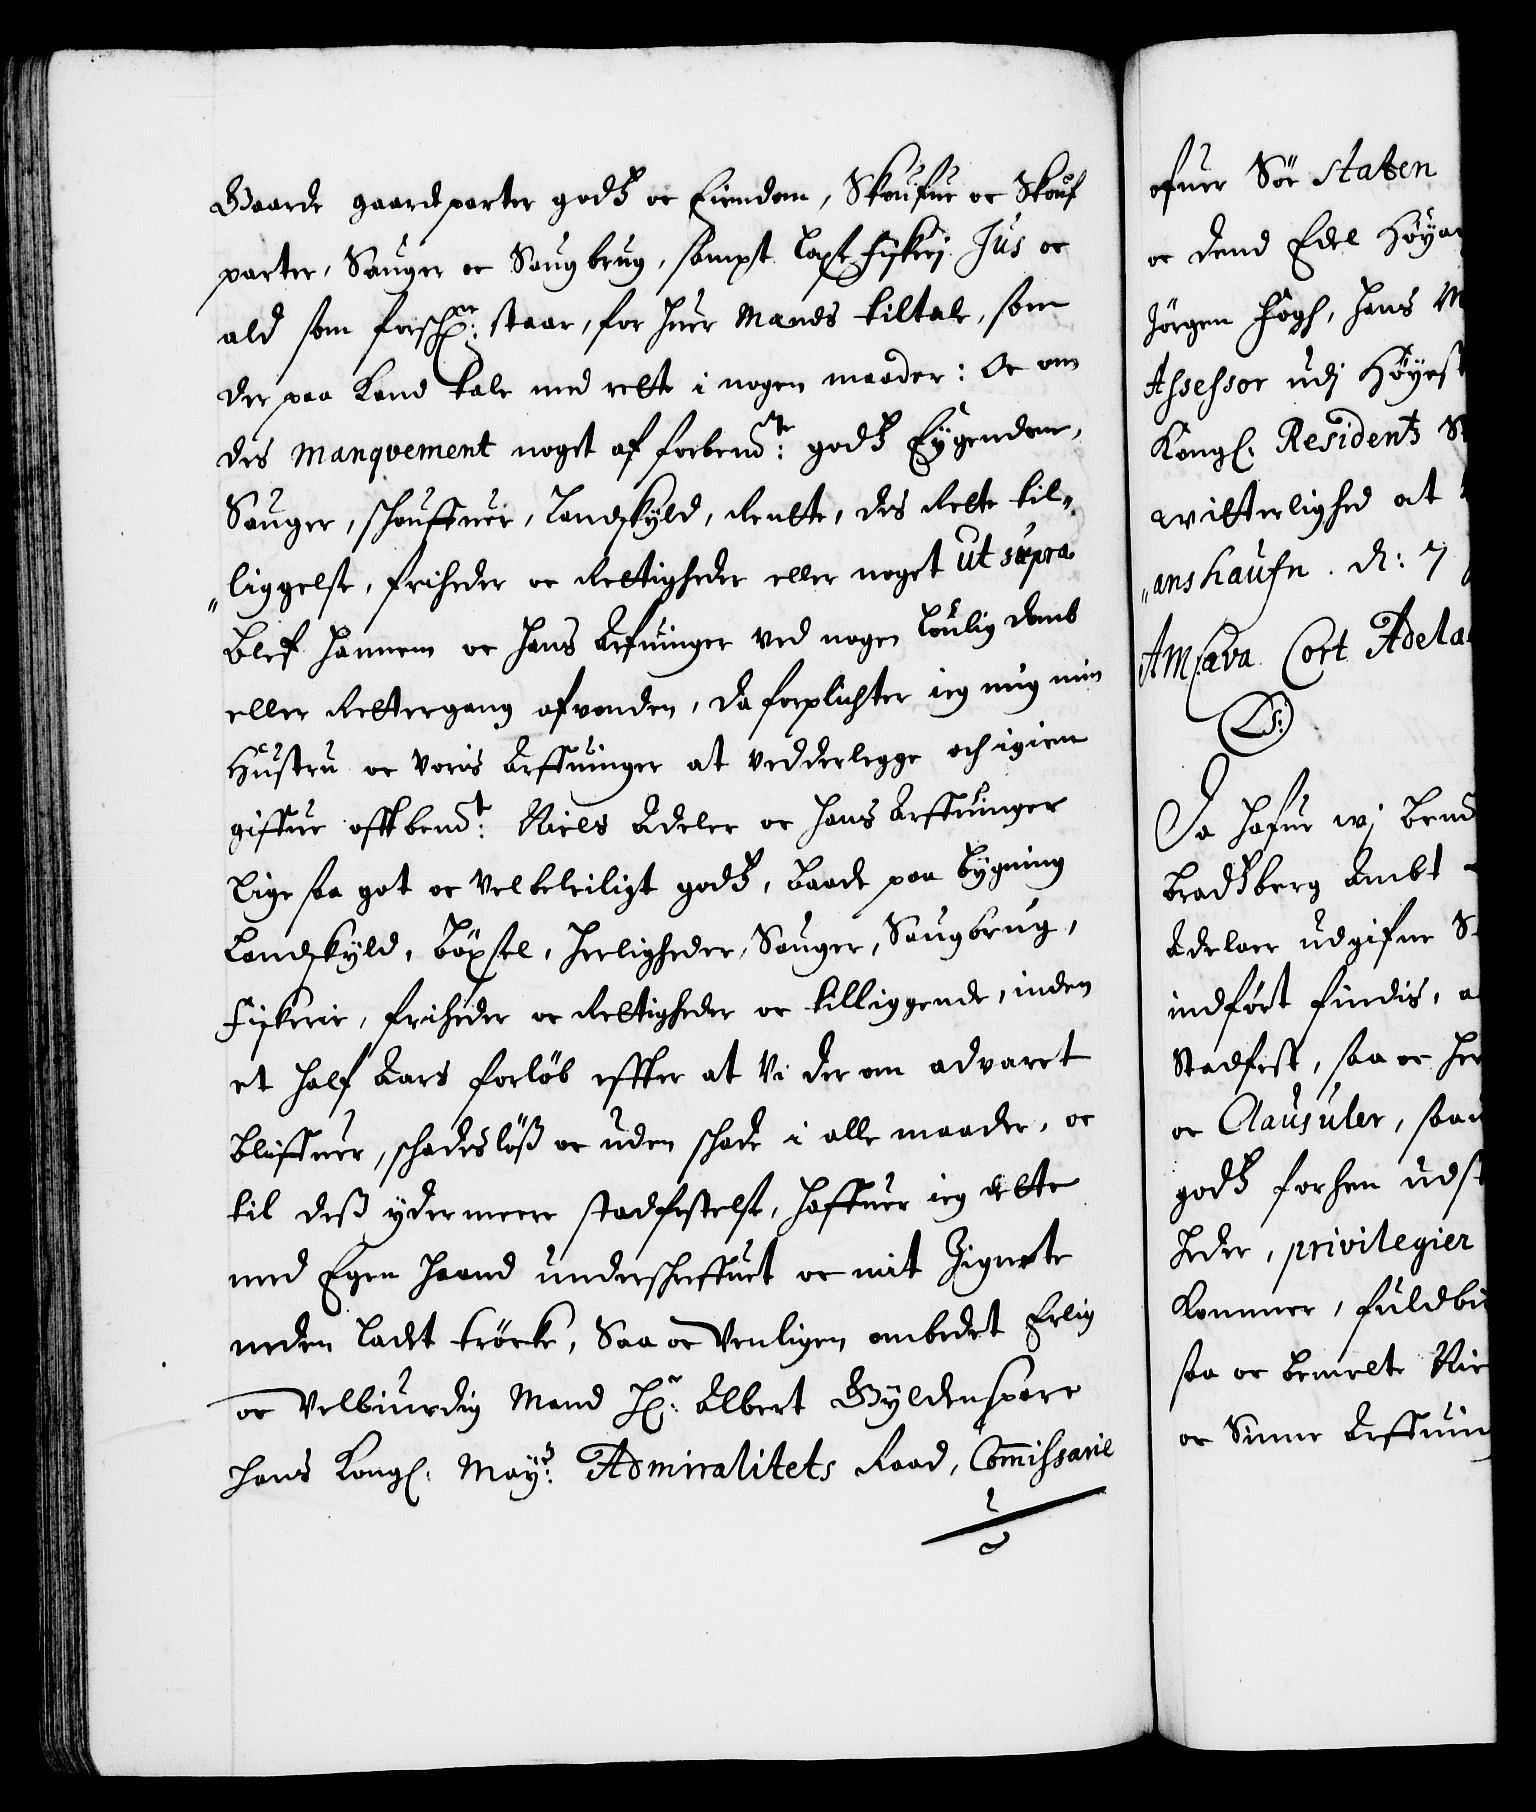 Gaarde gaardeparter godtz oc Eiendom, Skoufue oc Skouf
parter, Sauger oc Saugbrug, sampt Laxe Fiskerj Jus oc
ald som forschr: staar, for huer Mands tiltale, som
der paa kand tale med rette i nogen maader: Oc om
des Manqvement noget af forbemte: godtz Eygendom,
Sauger, schouffuer, Landskyld, Rentte, des Rette til„
„liggelse, friheder oc Rettigheder eller noget ut supra
blef hannem oc hans Arfuinger ved nogen Loulig domb
eller Rettergang afvonden, da forplichter ieg mig min
Hustru oc voris Arffuinger at vedderlegge och igien
giffue offtbemt: Niels Adeler oc hans Arffuinger
Lige saa got oc velbeleiligt godtz, baade paa bygning
Landskyld, böxsel, herligheder, Sauger, Saugbrug,
Fiskerie, friheder oc Rettigheder oc tilliggende, inden
et half Aars forlöb effter at vi der om advaret
bliffuer, schadeslöß oc uden schade i alle maader, oc
til deß ydermeere stadfestelse, haffuer ieg dette
med Egen haand underschreffuet oc mit Zignete
neden ladet tröcke, Saa oc venligen ombedet Erlig
oc Velbiurdig Mand Hr: Albert Gyldensparre
hans Kongl. Mayts: Admiralitets Raad, Commissarie
ofuer Söe staten
oc dend Edle Höya
Jörgen Fogh, hans M
Assessor udj Höyest
Kongl. Residentz S
witterlighed at
„anshaufn. d: 7
AmCava Cort Adela
LS:
Da hafue wj bemd
Bradtzberg Ambt
Adelaer udgifne S
indfört findis, a
Stadfest, saa oc her
oc Clausuler, saa
godtz forhen udst
heder, privilegier
kommer, fuldby
saa oc bemelte Nie
oc Sinne Arffuin